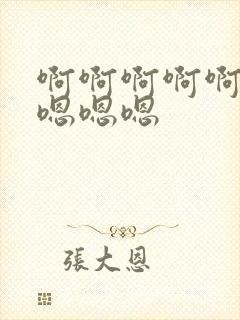 啊啊啊啊啊
嗯嗯嗯
張大恩